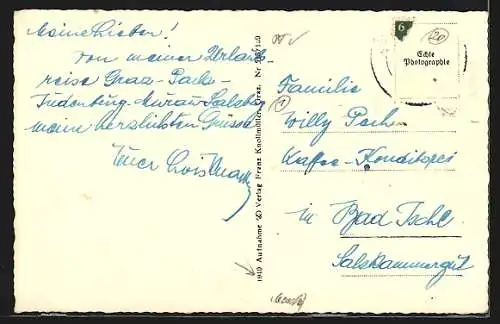 Meine Lieben!
Von meiner Urlaubs-
reise Graz - Pack -
Judenburg - Murau -
meine herzlichsten Grüsse
Euer
1949 Aufnahme & Verlag Franz Knollmüller, Graz. Nr.
6
20
Echte
Photographie
Familie
1
Willy
Kaffee - Konditorei
in Bad Ischl
Salzkammergut